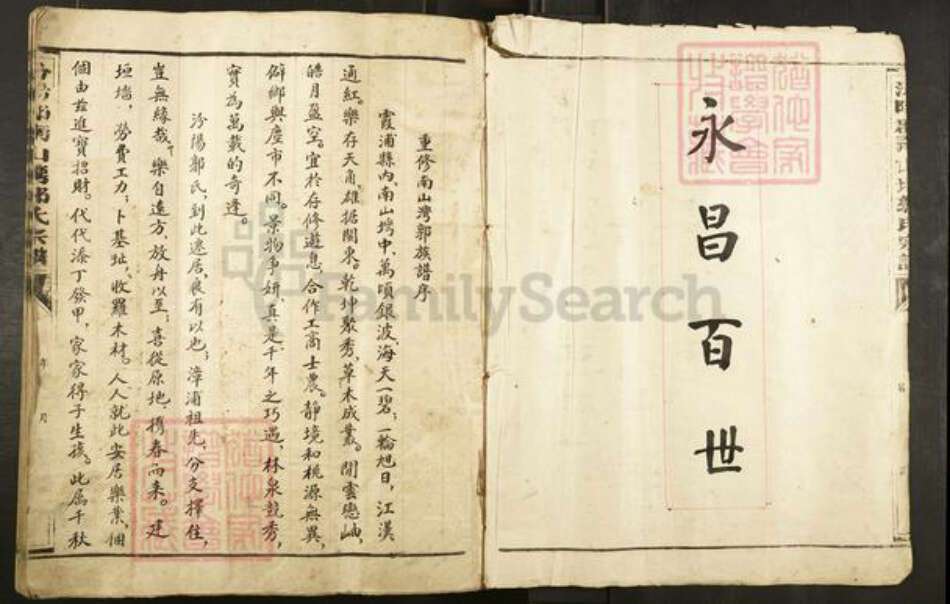 永昌百世
重修南山灣郭族譜序
霞浦縣內、南山塆中、萬頃銀波、海天一碧；一輪旭日，江漢
通紅。樂存天角、雄据閩東。乾坤聚秀、草木成叢。閒雲戀岫、
皓月盈空。宜於存修遊息、合作工商士農。靜境和桃源無異，
僻鄉與塵市不同。景物爭妍、真是千年之巧遇，林泉競秀，
實為萬載的奇逢。
汾陽郭氏、到此遷居、良有以也；漳浦祖先、分支擇住，
豈無緣哉。樂自遠方、放舟以至；喜從原地、携春而来。建
垣墻，勞費工力；卜基址、收羅木材。人人就此安居樂業、個
個由兹進寶招財。代代添丁發甲，家家得子生孩。此属千秋
FamilySearch